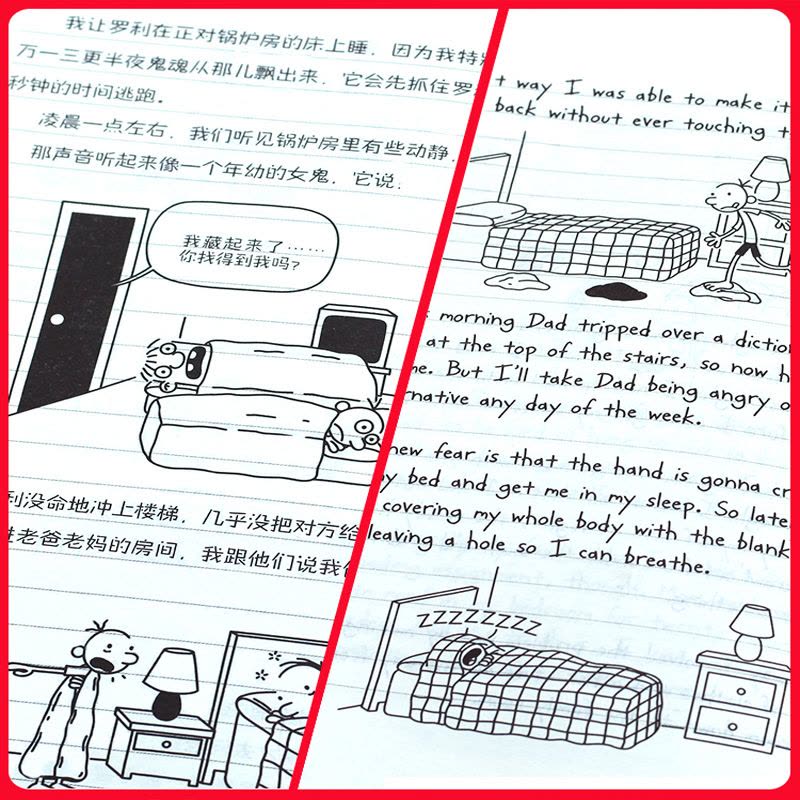 我让罗利在正对锅炉房的床上睡，因为我特
万一三更半夜鬼魂从那儿飘出来，它会先抓住罗
秒钟的时间逃跑。
凌晨一点左右，我们听见锅炉房里有些动静，
那声音听起来像一个年幼的女鬼，它说：
我藏起来了……
你找得到我吗？
没命地冲上楼梯，几乎没把对方给
老爸老妈的房间，我跟他们说我
t way I was able to make it
back without ever touching t
morning Dad tripped over a dictio
at the top of the stairs, so now h
me. But I'll take Dad being angry o
rnative any day of the week.
new fear is that the hand is gonna cr
y bed and get me in my sleep. So late
covering my whole body with the blank
leaving a hole so I can breathe.
ZZZZZZZZZ